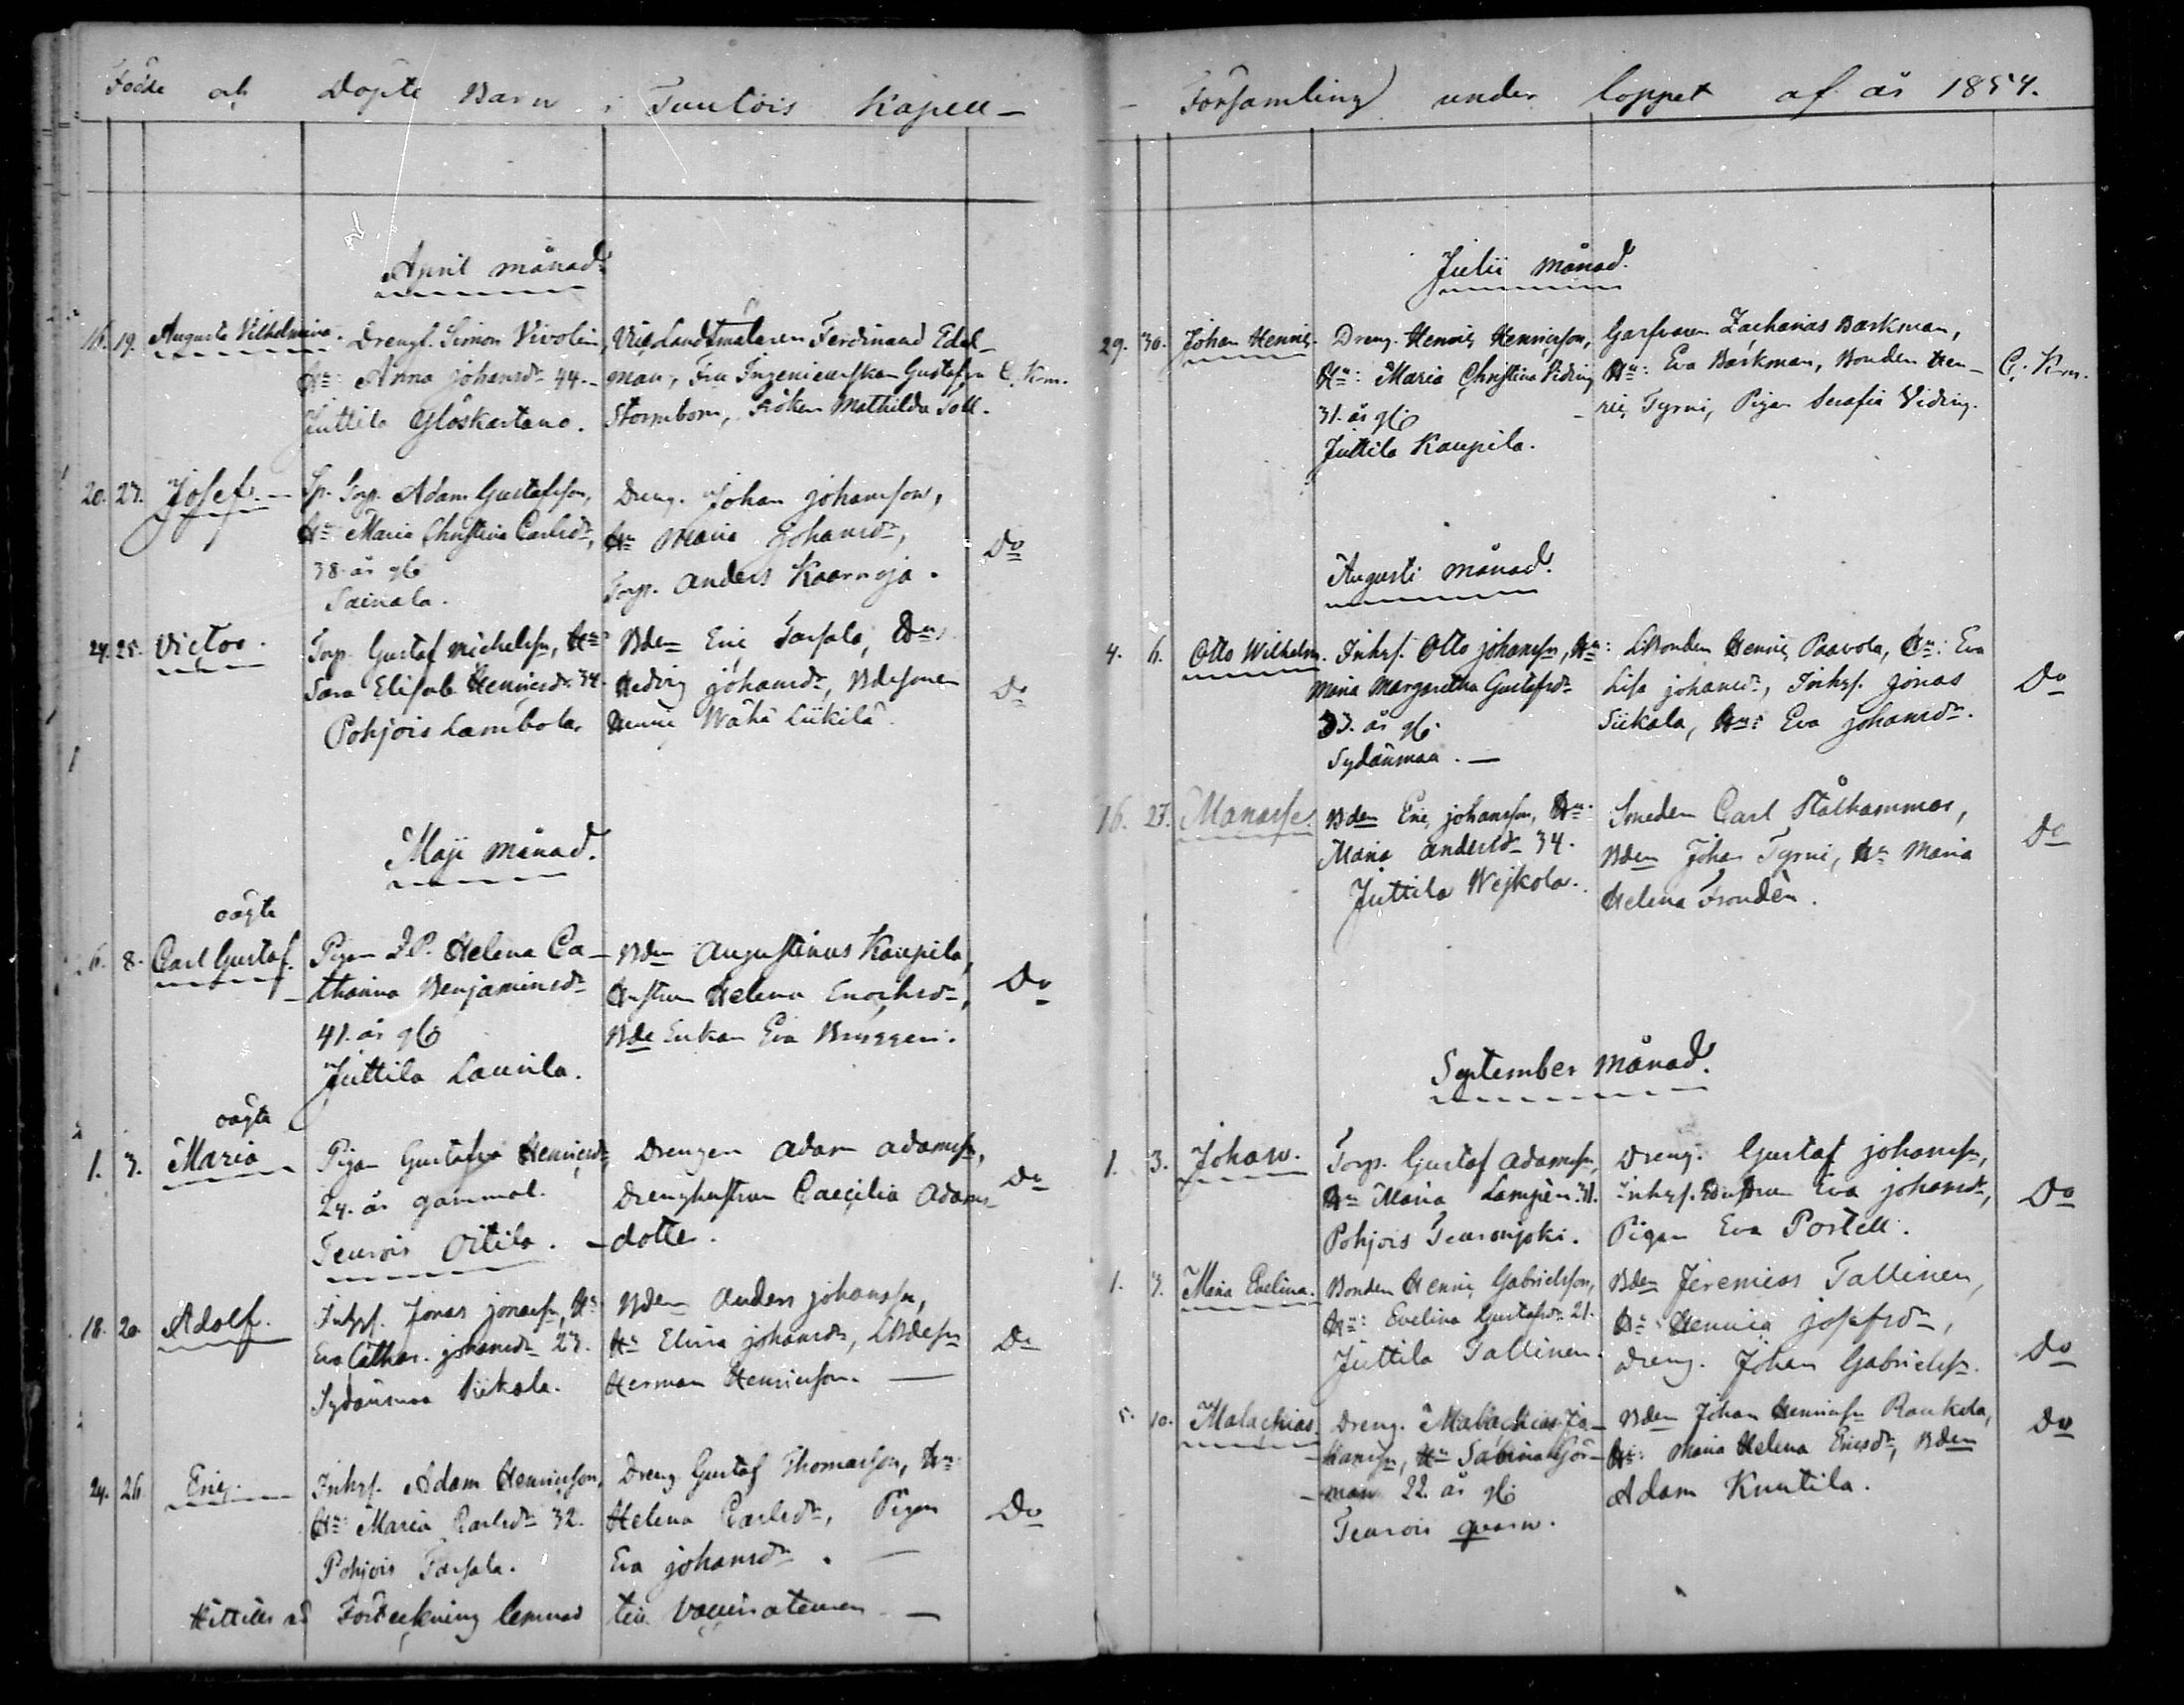 Födde och Döpte Barn i Tuulois Kapell-
April månad.
16. 19. Augusta Vilhelmina. Drengf. Simon Vivolin,
Hu: Anna Johansdr 44.
Juttila
Landtmätaren Ferdinand Edel-
man, Fru Ingenieurskan Gustafva C. Km.
Stormbom, Fröken Mathilda Toll.
20. 23. Josef.
Adam Gustafsson,
Hu Maria Christina Carlsdr,
38 år gl.
Sainala.
Dreng. Johan Johansson,
Hu Maria Johansdr, Do
Torp. Anders Kaarnoja.
24. 25. Victor.
Torp. Gustaf Michelsn, Hu
Sara Elisab. Henricsdr 34.
Pohjois Lambola.
Bden Eric Tarsala,
Hedvig Johansdr, Bdesonen Do
Henric Wähä Liikilä.
Maji månad.
oägta
6. 8. Carl Gustaf.
Pigan Helena Ca-
tharina Benjaminsdr
41. år gl.
Juttila Laurila.
Bden Augustinus Kaupila,
Hustrun Helena Enochsdr, Do
Bde Enkan Eva
oägta
1. 3. Maria
Pigan Gustafva Henricsdr,
24. år gammal.
Teurois Oitila.
Drengen Adam Adamsn,
Drenghustrun Caecilia Adams- Do
-dotter.
18. 20. Adolf.
Inhys. Jonas Jonassn, Hu
Eva Cathar. Johansdr 23.
Sydänmaa Siikala.
Bden Anders Johanssn,
Hu Elina Johansdr, Do
Herman Henricsson.
24. 26. Eric.
Inhys. Adam Henricsson,
Hu: Maria Carlsdr 32.
Pohjois Tarsala.
Dreng Gustaf Thomasson, Hu
Helena Carlsdr, Pigan Do
Eva Johansdr.
Hittills är Förteckning lemnad till Vaccinateuren
- Församling under loppet af år 1854.
Julii månad.
29. 30. Johan Henric.
Dreng. Henric Henricsson,
Hu: Maria Christina Viding
31. år gl.
Juttila Kaupila.
Garfvaren Zacharias Barkman,
Hu: Eva Barkman, Bonden Hen- C. Km.
ric Tyrni, Pigan Serafia Viding.
Augusti månad.
4. 6. Otto Wilhelm.
Inhys. Otto Johanssn, Hu:
Maria Margaretha Gustafsdr
33. år gl.
Sydänmaa.
Henric Paavola, Hu: Eva
Lisa Johansdr, Inhys. Jonas Do
Siikala, Hu: Eva Johansdr.
16. 27. Manasse.
Bden Eric Johansson, Hu
Maria Andersdr 34.
Juttila Wejkola.
Smeden Carl Stålhammar,
Bden Johan Tyrni, Hu Maria Do
Helena Frondén.
September månad.
1. 3. Johan.
Torp. Gustaf Adamssn,
Hu Maria Lampén 31.
Pohjois
Dreng. Gustaf Johanssn,
Inhys. Hustrun Eva Johansdr, Do
Pigan Eva Portell.
1. 3. Maria Evelina.
Bonden Henric Gabrielsson,
Hu: Evelina Gustafsdr 21.
Juttila Tallinen.
Bden Jeremias Tallinen,
Hu Henrica Josefsdr,
Dreng. Johan Gabrielssn. Do
5. 10. Malachias.
Dreng. Malachias Jo-
-hanssn, Hu Sabina Gör-
-man 22. år gl.
Teurois qvarn.
Bden Johan Henricssn Raukola, Do
Hu: Maria Helena Ericsdr, Bden
Adam Knutila.